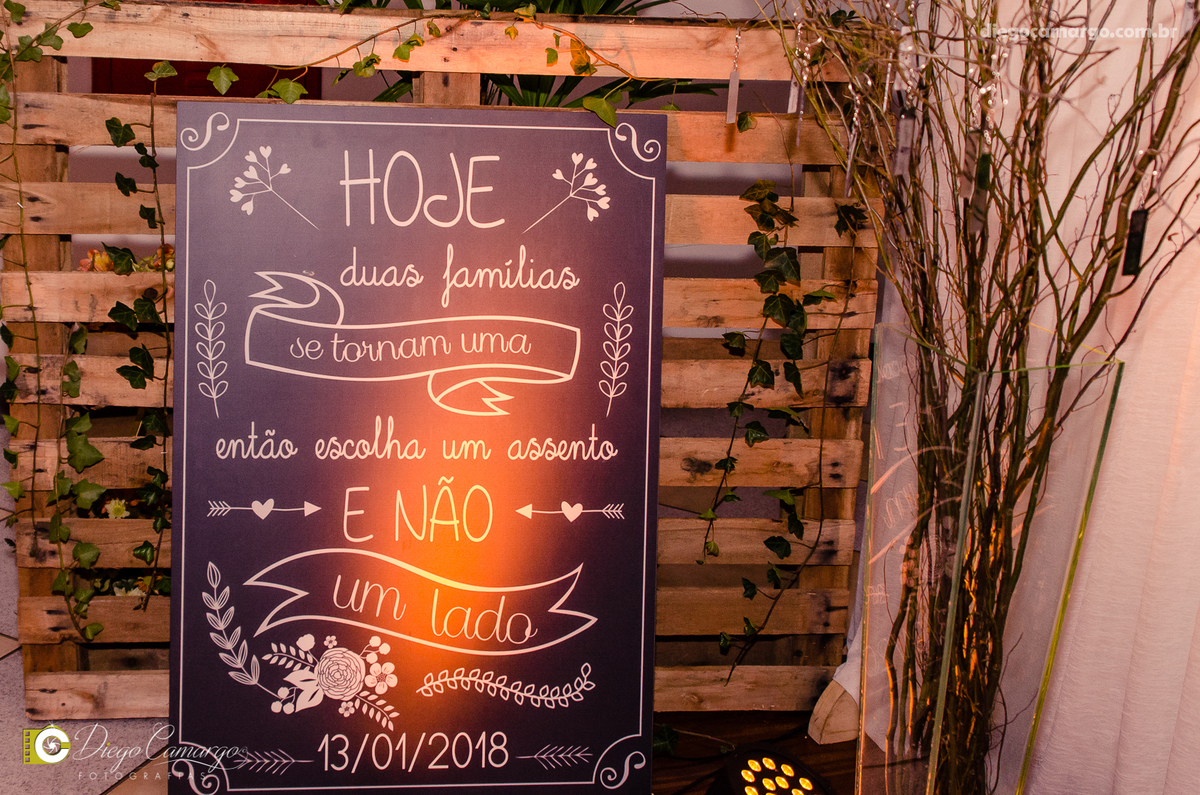 diegocamargo.com.br
HOJE
duas famílias
se tornam uma
então escolha um assento
E NÃO
um lado
13/01/2018
Diego Camargo
FOTOGRAFIAS